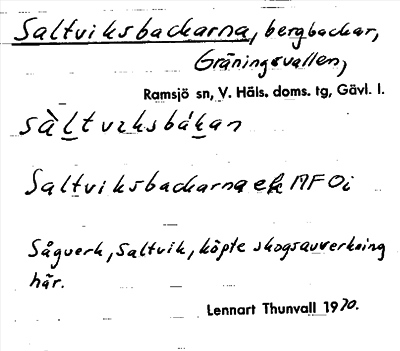 Saltviksbackarna, bergbackar,
Gräningsvallen,
Ramsjö sn, V. Häls. doms. tg, Gävl. l.
sàltviksbákan
Saltviksbackarna ek AFOi
Sågverk, Saltvik, köpte skogsavverkning
här.
Lennart Thunvall 1970.